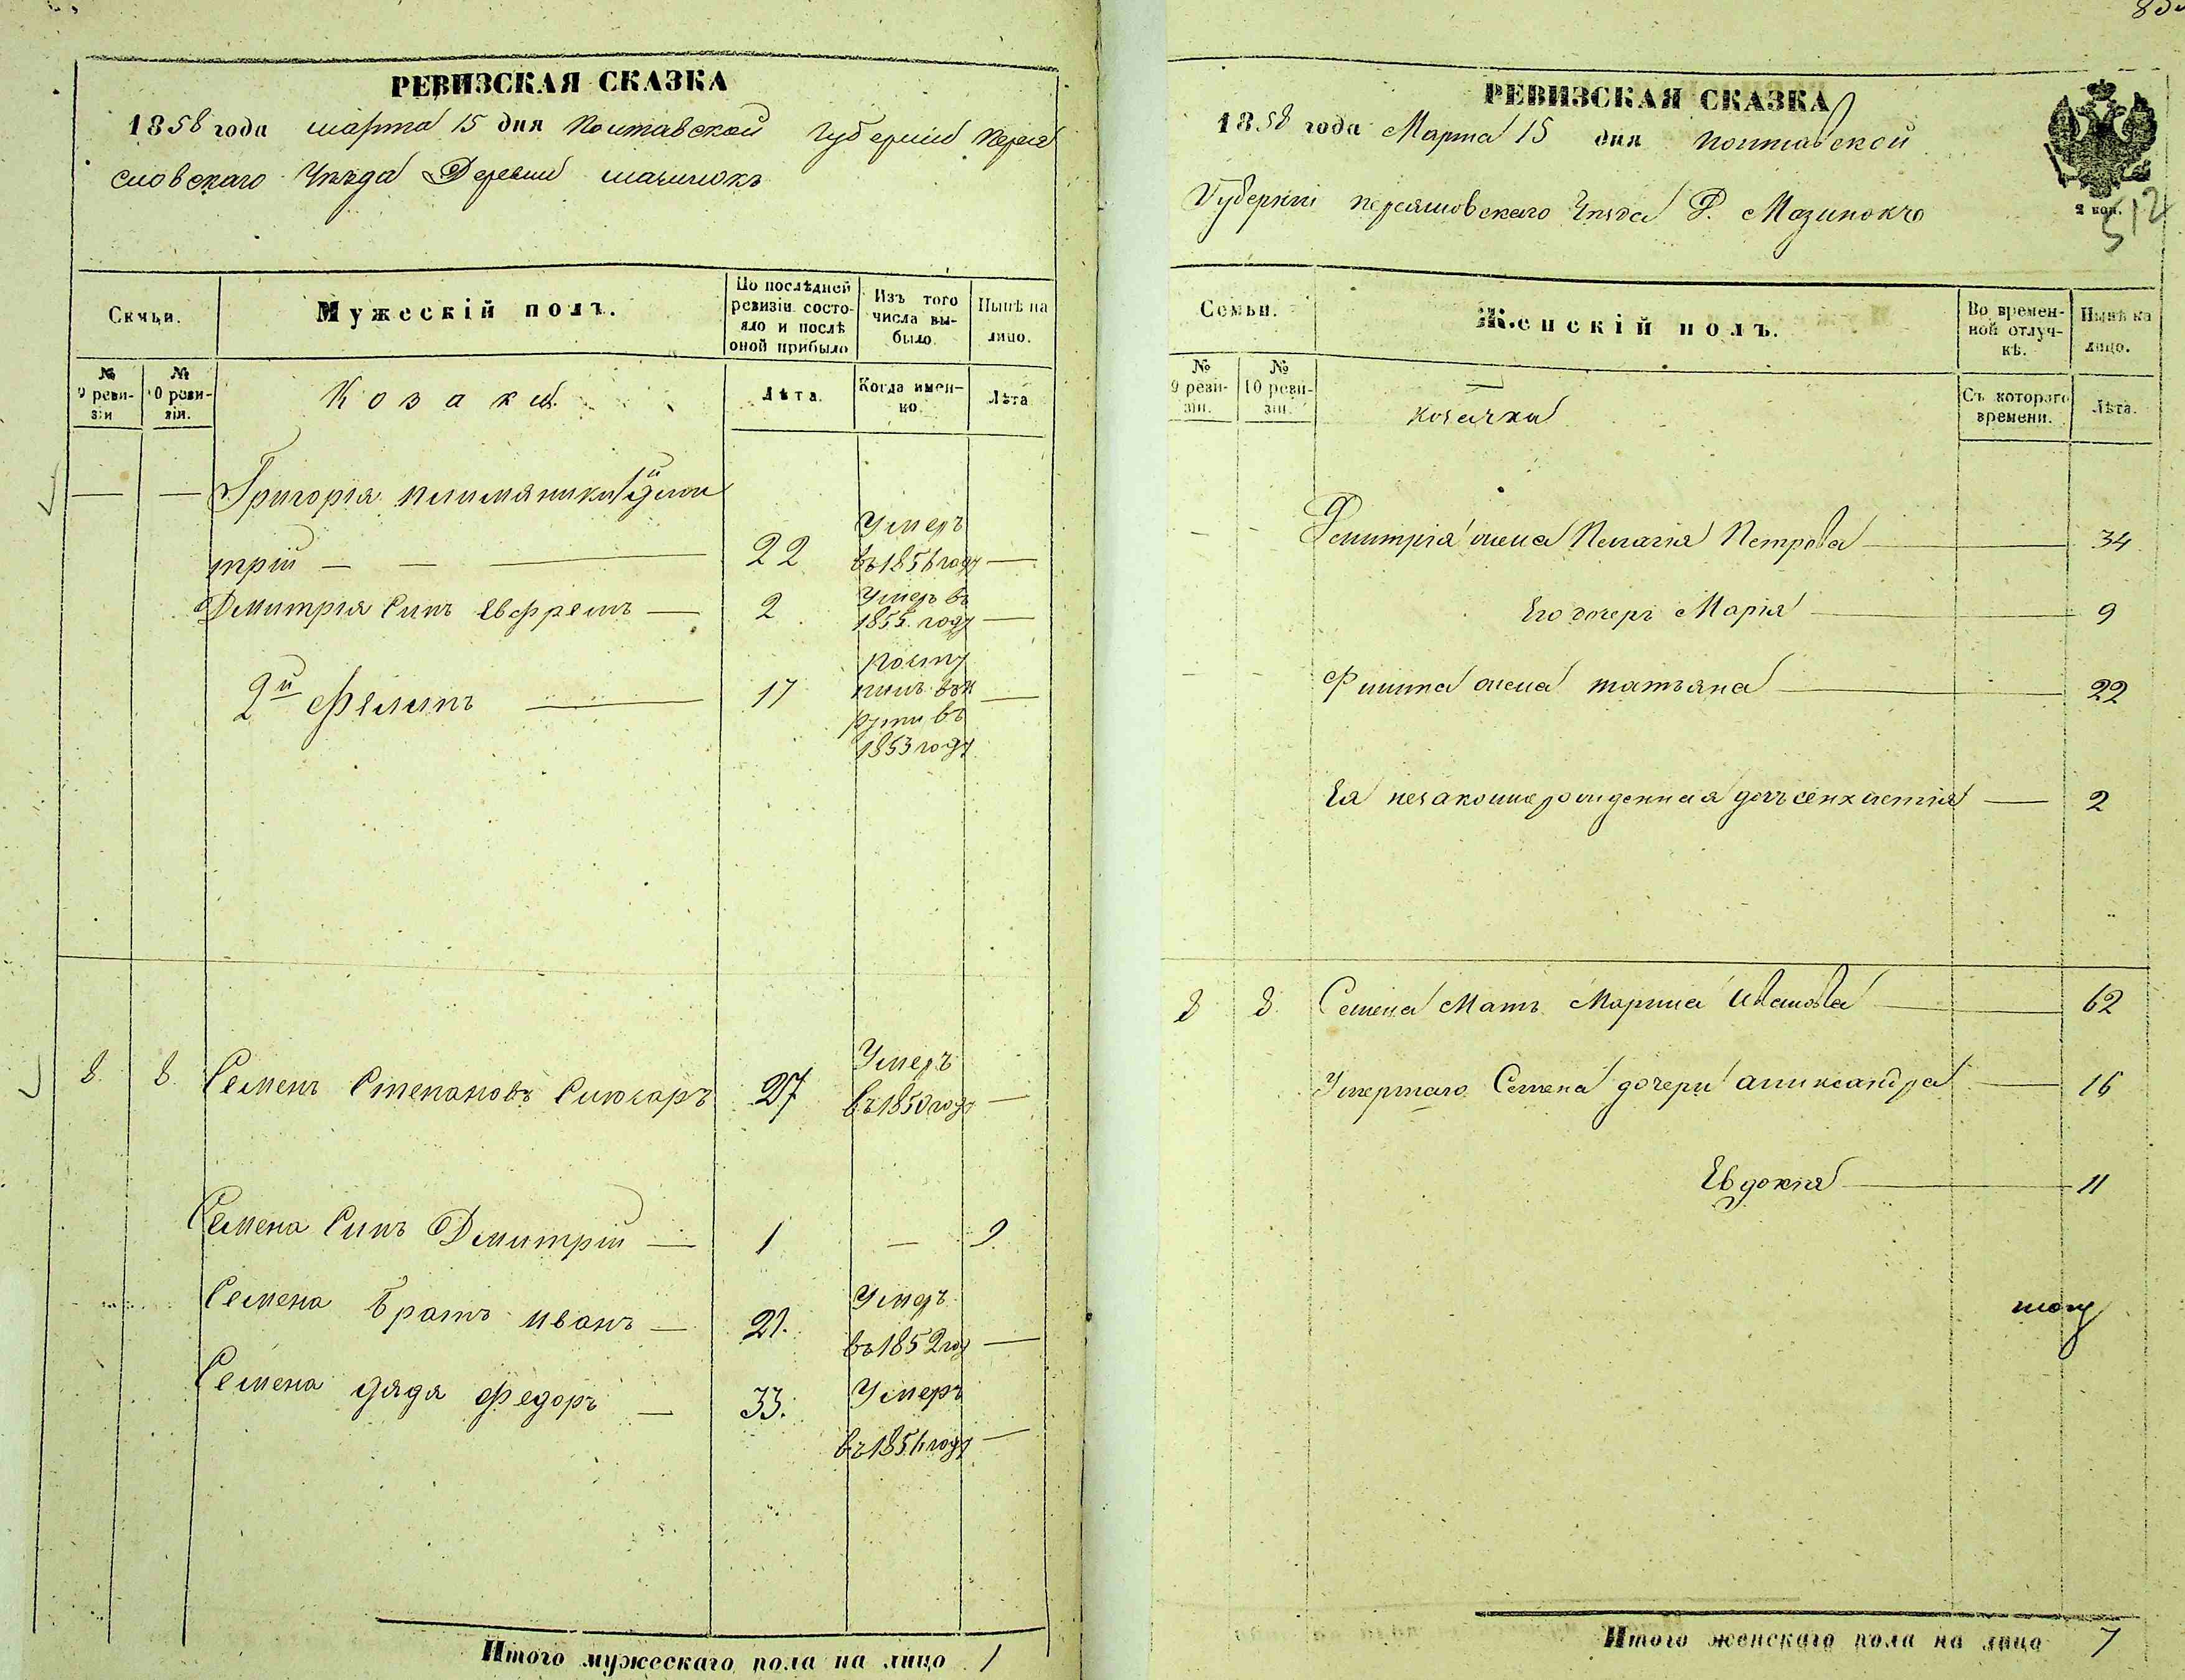 РЕВИЗСКАЯ СКАЗКА
1858 года марта 15 дня Полтавской Губерніи Перея
словскаго Уезда Деревни мазинокъ
Семьи.
Мужескій полъ.
По послѣдней ревизіи состояло и послѣ оной прибыло
Изъ того числа выбыло.
Нынѣ на лицо.
№ 9 ревизіи
№ 10 ревизіи.
Козаки.
Лѣта.
Когда именно.
Лѣта
Григорія племяники 1й Дми
трій — — — 22 Умеръ въ 1856 году —
Дмитрія Синъ Евфремъ — 2 Умеръ въ 1855 году —
2й Филипъ — 17 Посту пилъ въ рекруты въ 1853 году —
8. 8. Семенъ Степановъ Слюсаръ 27 Умеръ въ 1850 году —
Семена Синъ Дмитрій — 1 — 9.
Семена братъ иванъ — 21. Умеръ въ 1852 год —
Семена дядя Федоръ — 33. Умеръ въ 1856 году —
Итого мужескаго пола на лицо 1
РЕВИЗСКАЯ СКАЗКА
1858 года Марта 15 дня полтавской
Губерніи переяславскаго Уезда Д. Мазинокъ
2 коп.
512
Семьи.
Женскій полъ.
Во временной отлучкѣ.
Нынѣ на лицо.
№ 9 ревизіи.
№ 10 ревизіи.
козачки
Съ котораго времени.
Лѣта.
Демитрія жена Пелагія Петрова — 34
Его дочерь Марія — 9
Филипа жена татьяна — 22
Ея незаконнорожденная дочь — 2
8 8. Семена Мать Марина Иванова — 62
Умершаго Семена дочери Александра — 16
Евдокія — 11
Итого женскаго пола на лицо 7